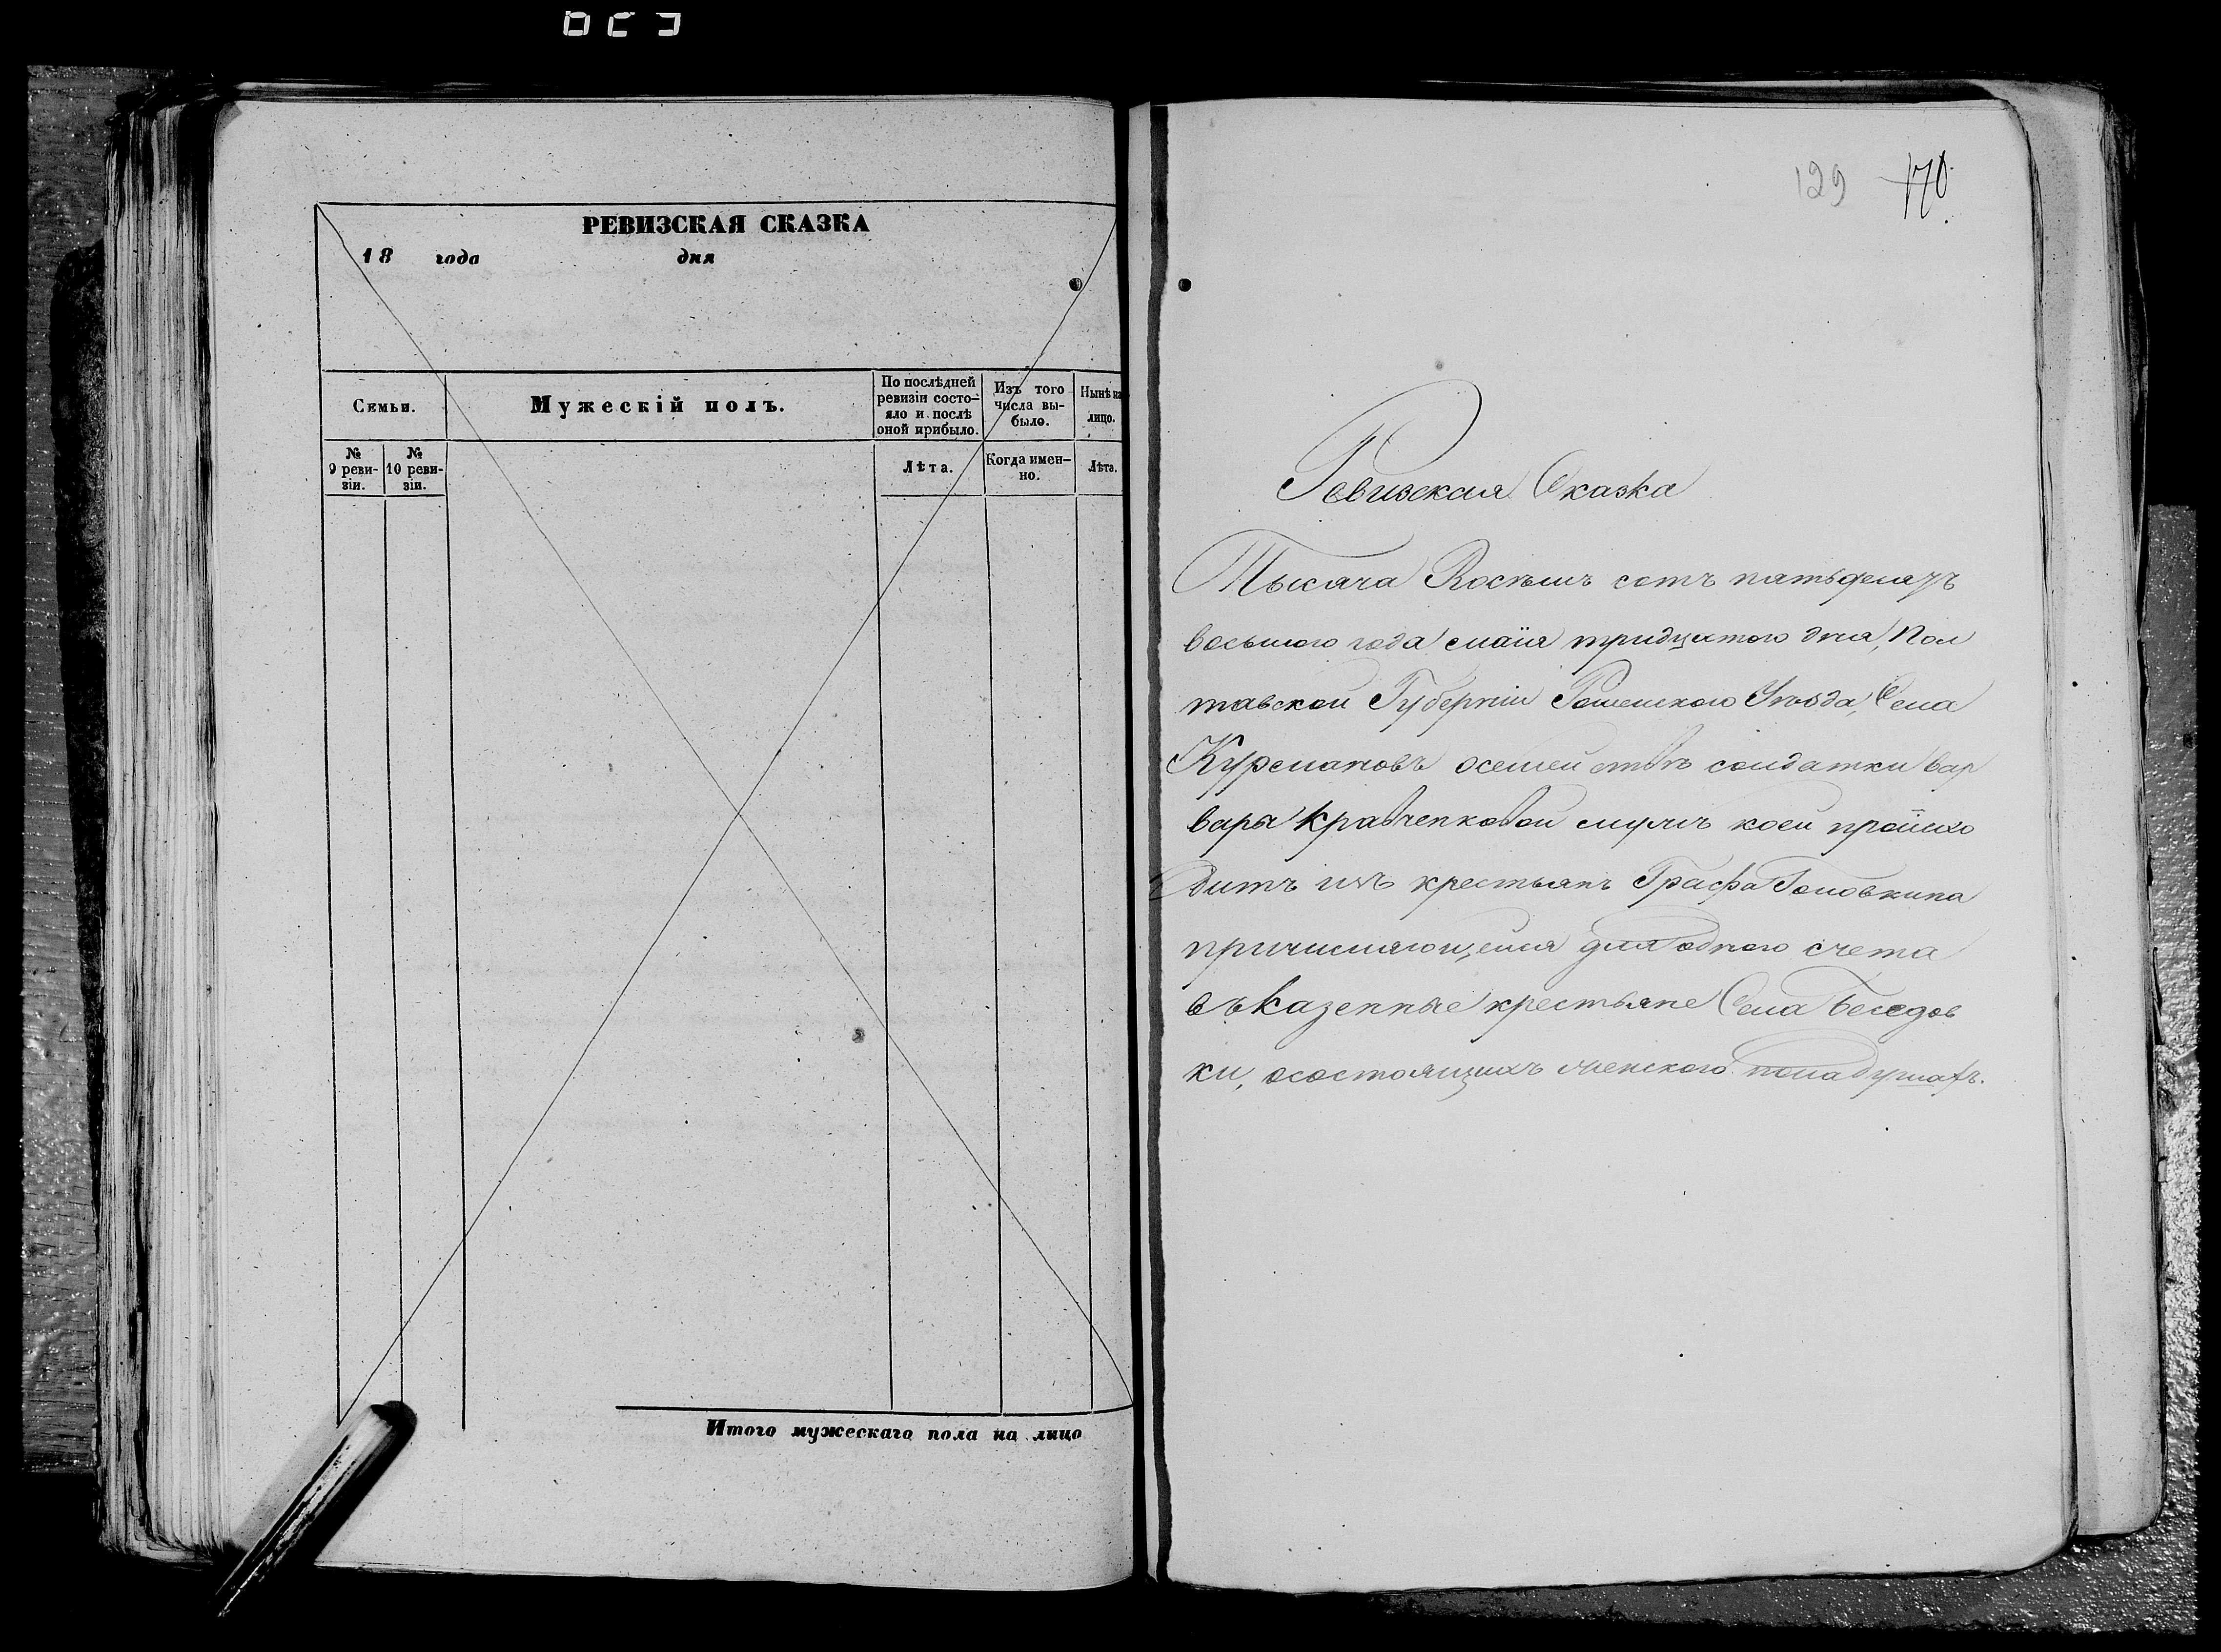 РЕВИЗСКАЯ СКАЗКА
18 года дня
Семьи.
Мужескій полъ.
По послѣдней ревизіи состо-
яло и послѣ
оной прибыло.
Изъ того
числа вы-
было.
Нынѣ на
лицо.
№
9 реви-
зіи.
№
10 реви-
зіи.
Лѣта.
Когда имен-
но.
Лѣта.
Итого мужескаго пола на лицо
129 170.
Ревизская Сказка
Тысяча Восѣмъ сотъ пятьдесятъ
восьмого года маія тридцятого дня, Пол
тавской Губерніи Роменского Уѣзда, Села
Курмановъ осемей солдатки вар
вары Кравченковой мужъ коей проізхо
дитъ изъ крестьянъ Графа Головкина
причисляющейся для одного счета
въ Казенные крестьяне Села Беседов
ки, осостоящихъ женского пола душахъ.